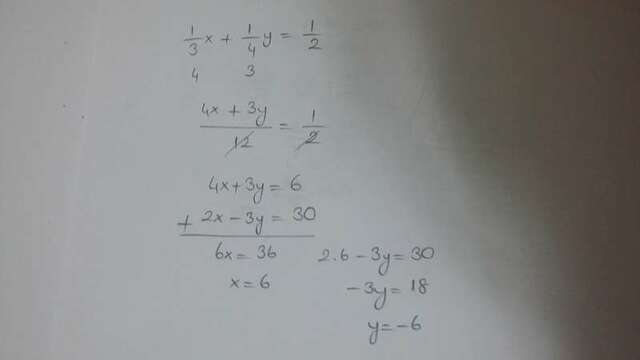 1/3 x + 1/4 y = 1/2
4 3
4x + 3y / 12 = 1 / 2
4x + 3y = 6
+ 2x - 3y = 30
6x = 36
x = 6
2.6 - 3y = 30
-3y = 18
y = -6